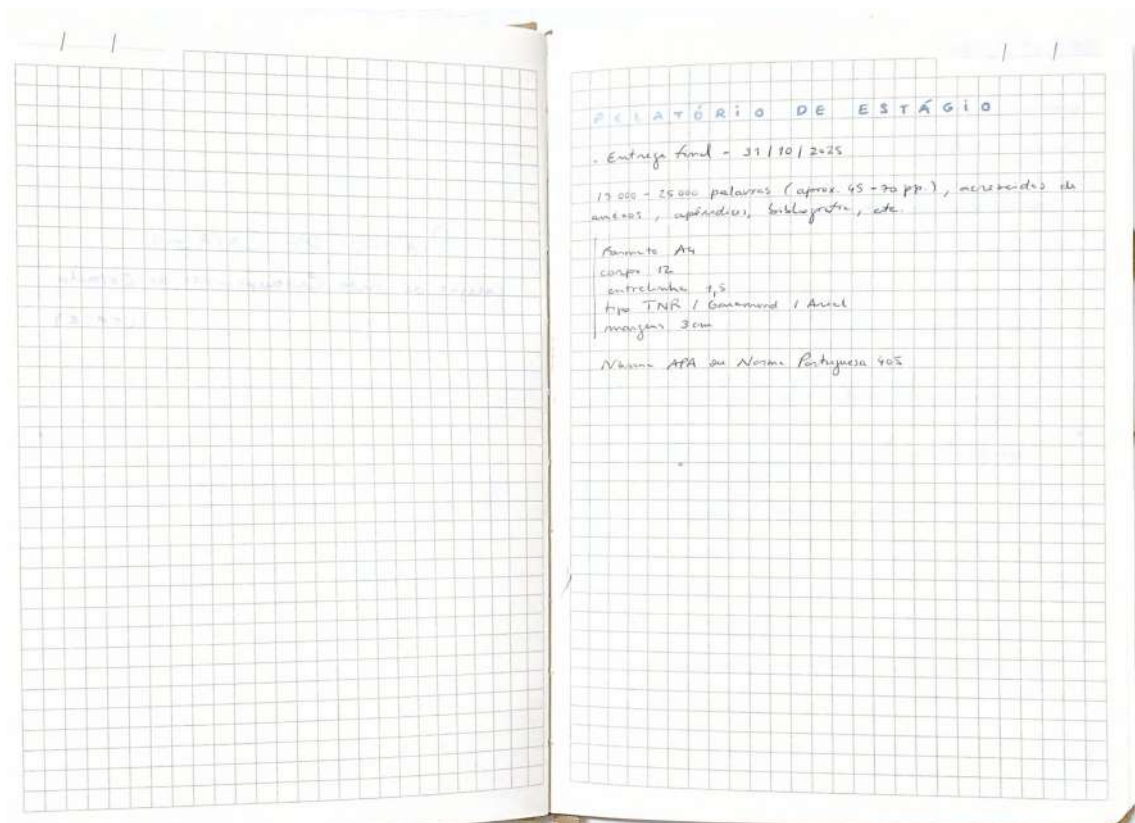 / /
/ /
RELATÓRIO DE ESTÁGIO
. Entrega final - 31/10/2025
000 - 25 000 palavras (aprox. 45 - 70 pp.), acrescidas de
anexos, apêndices, bibliografia, etc.
Formato A4
corpo 12
entrelinha 1,5
tipo TNR / Garamond / Arial
margens 3 cm
Norma APA ou Norma Portuguesa 405